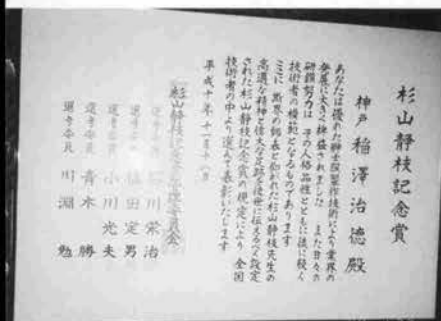 杉山静枝記念賞
神戸 稲澤治徳殿
あなたは優れた紳士服製作技術により業界の
発展に大きく裨益されました また日々の
研鑽努力は その人格品性とともに後に続く
技術者の模範となるものであります
ここに 斯界の師表と仰がれた杉山静枝先生の
高邁な精神と偉大な足跡を後世に伝えるべく設定
された杉山静枝記念賞の規定により 全国
技術者の中より選んで表彰いたします
平成十年十一月十八日
杉山静枝記念賞選考委員会
川栄治
定男
選考委員 小川光夫
選考委員 青木勝
選考委員 川淵勉